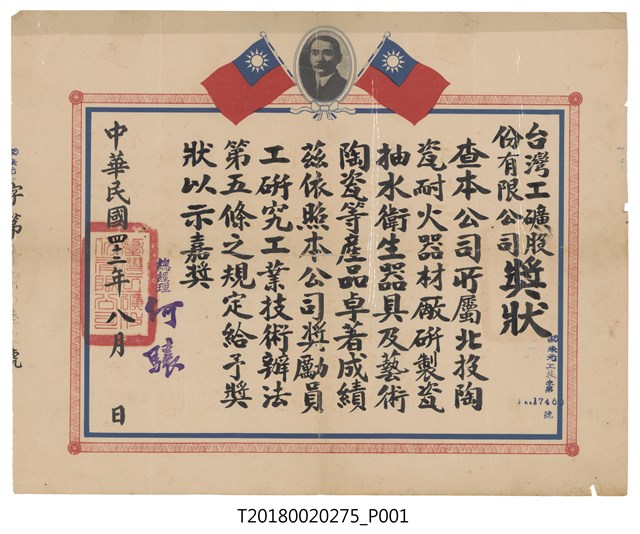 台灣工礦股
份有限公司
獎狀
查本公司所屬北投陶
瓷耐火器材廠研製瓷
抽水衛生器具及藝術
陶瓷等產品卓著成績
茲依照本公司獎勵員
工研究工業技術辦法
第五條之規定給予獎
狀以示嘉獎
總經理
何驤
中華民國四十二年八月 日
字第
號
T20180020275_P001